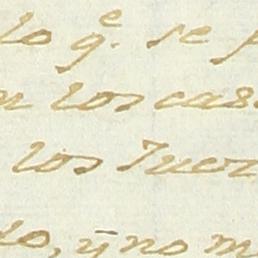 lo q.e se p
n los cas
los Juez
lo, y no m